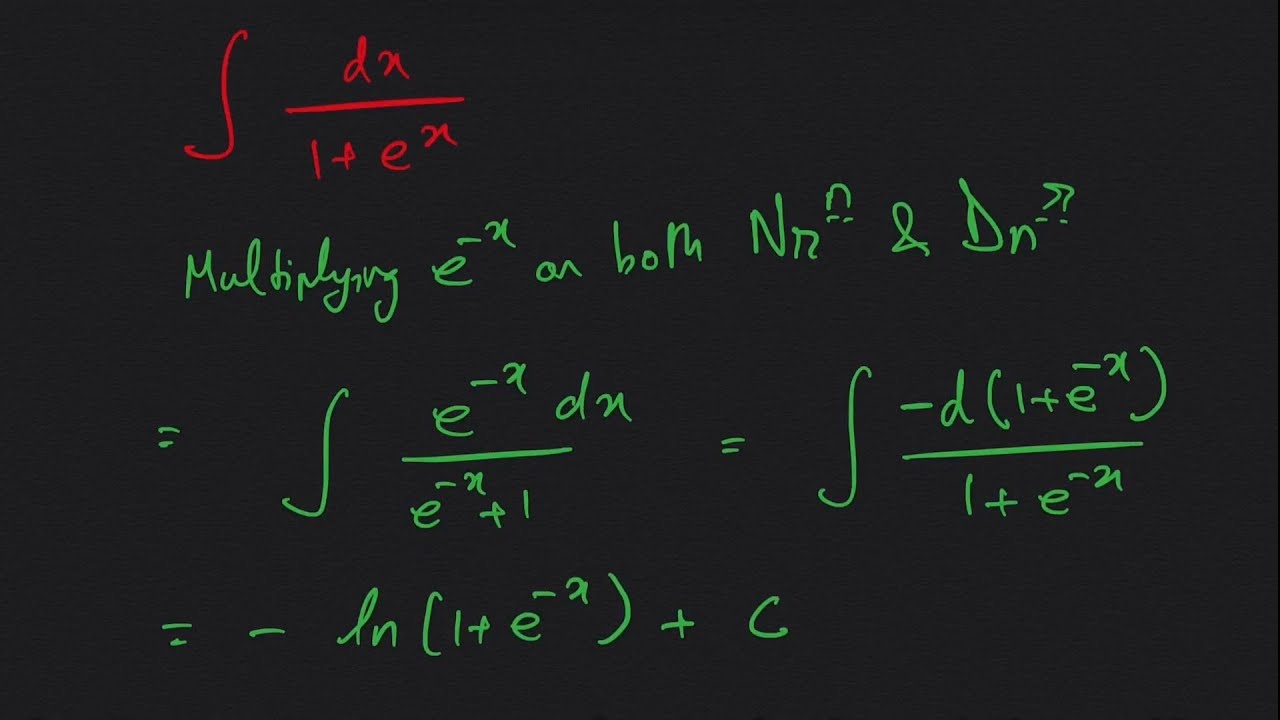 ∫ dx / (1 + e^x)
Multiplying e^-x on both Nr & Dn
= ∫ e^-x dx / (e^-x + 1) = ∫ -d(1+e^-x) / (1 + e^-x)
= - ln(1+e^-x) + C